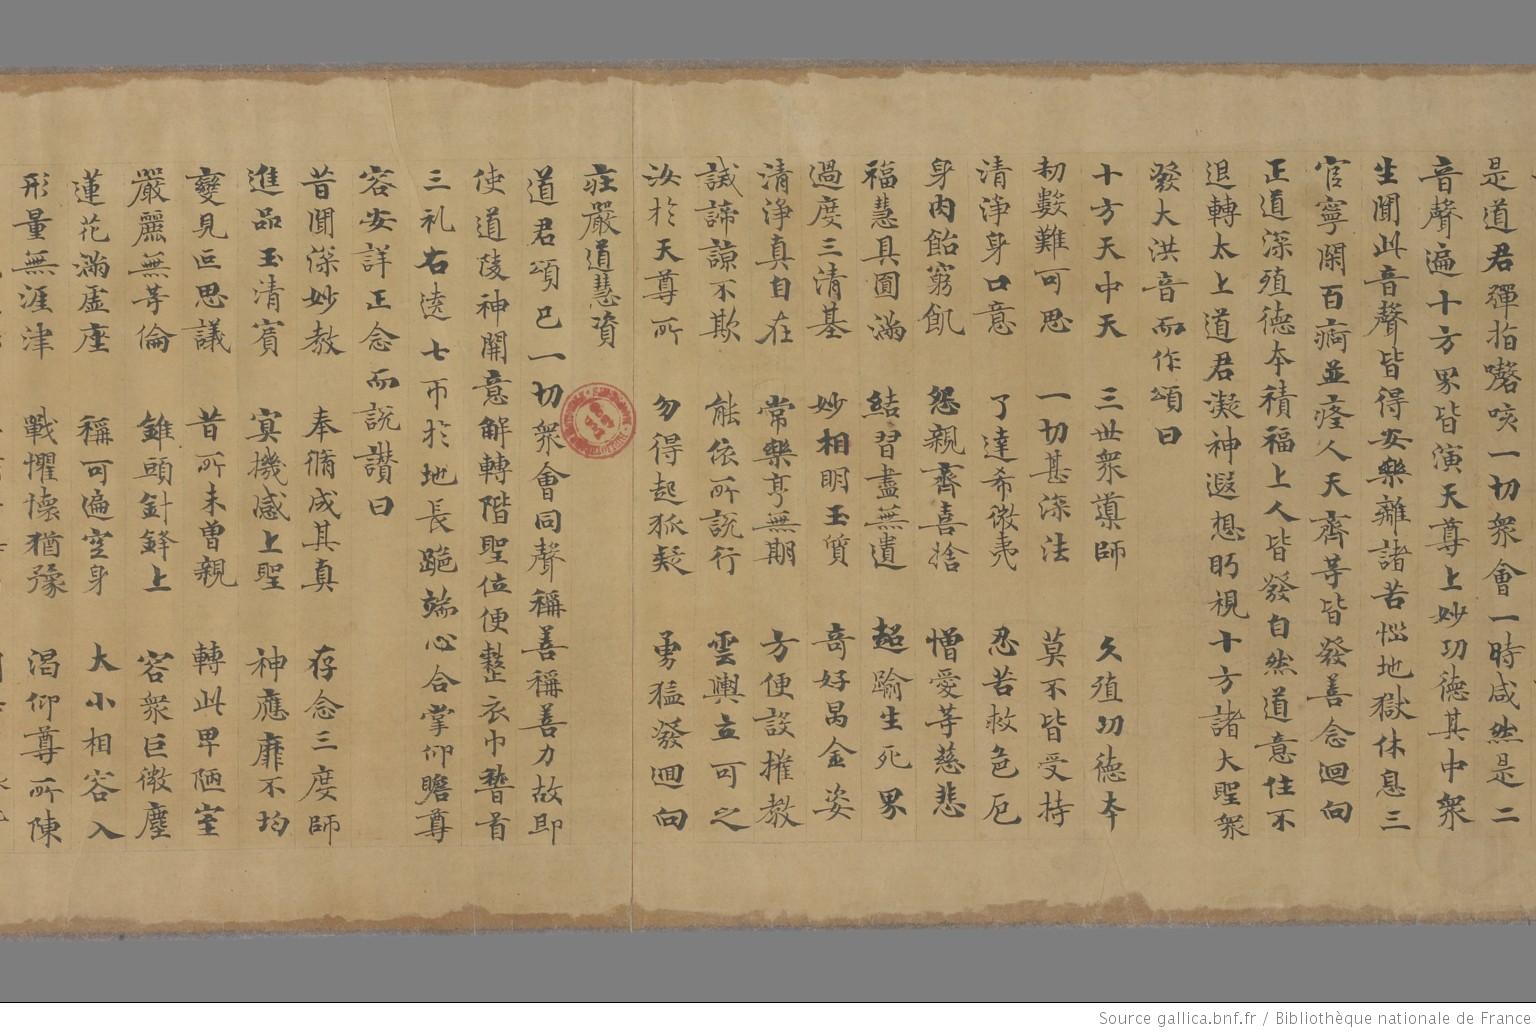 是道君彈指謦咳一切衆會一時咸然是二
音聲遍十方界皆演天尊上妙功德其中衆
生聞此音聲皆得安樂離諸苦惱地獄休息三
官寧閑百痾並痊人天齊等皆發善念迴向
正道深殖德本積福上人皆發自然道意住不
退轉太上道君凝神遐想眄視十方諸大聖衆
發大洪音而作頌曰
十方天中天 三世衆導師 久殖功德本
劫數難可思 一切甚深法 莫不皆受持
清淨身口意 了達希微夷 忍苦救危厄
身肉飴窮飢 怨親齊喜捨 憎愛等慈悲
福慧具圓滿 結習盡無遺 超踰生死界
過度三清基 妙相明玉質 奇好昺金姿
清淨真自在 常樂享無期 方便設權教
誡諦諒不欺 能依所說行 雲輿立可之
汝於天尊所 勿得起狐疑 勇猛發迴向
莊嚴道慧資
道君頌已一切衆會同聲稱善稱善力故即
使道陵神開意解轉階聖位便整衣巾𢷤首
三礼右遶七帀於地長跪端心合掌仰瞻尊
容安詳正念而說讚曰
昔聞深妙教 奉脩成其真 存念三度師
進品玉清賓 冥機感上聖 神應靡不均
變見叵思議 昔所未曽親 轉此卑陋室
嚴麗無等倫 錐頭針鋒上 容衆巨微塵
蓮花滿虛座 稱可遍空身 大小相容入
形量無涯津 戰懼懷猶豫 渴仰尊所陳
Source gallica.bnf.fr / Bibliothèque nationale de France